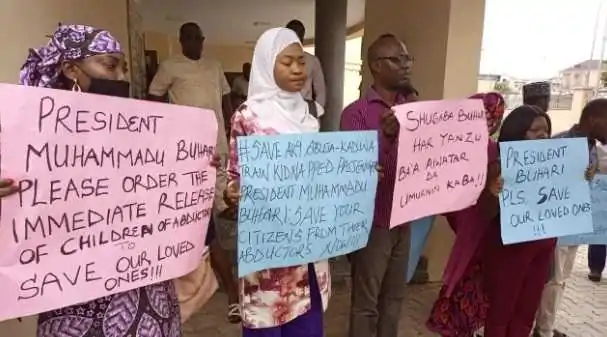 PRESIDENT
MUHAMMADU BUHARI
PLEASE ORDER THE
IMMEDIATE RELEASE
OF CHILDREN OF ABDUCTORS
TO
SAVE OUR LOVED
ONES!!!
# SAVE ABUJA-KADUNA
TRAIN KIDNAPPED PASSENGER
PRESIDENT MUHAMMADU
BUHARI: SAVE YOUR
CITIZENS FROM THEIR
ABDUCTORS NOW!!!
SHUGABA BUHARI
HAR YANZU
BA'A AIWATAR
DA
UMURNIN KA BA!!
PRESIDENT BUHARI
PLS. SAVE
OUR LOVED ONES
!!!